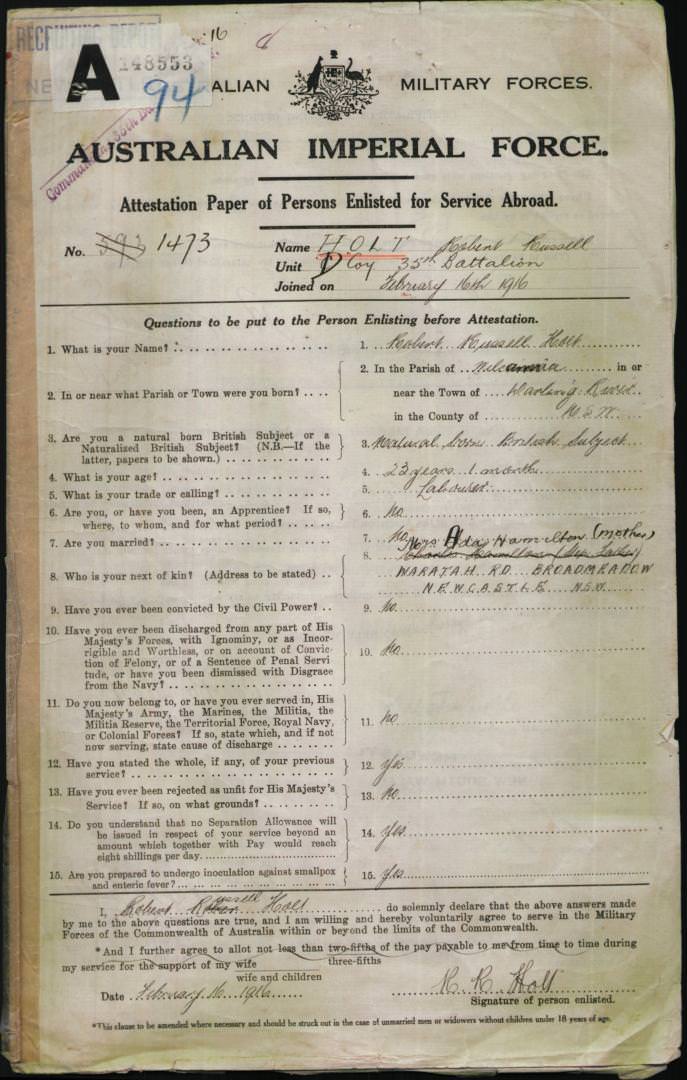 RECRUITING DEPOT
16
A
148553
94
ALIAN MILITARY FORCES.
AUSTRALIAN IMPERIAL FORCE.
Attestation Paper of Persons Enlisted for Service Abroad.
No. 1473
Name HOLT Robert Russell
Unit D Coy 35th Battalion
Joined on February 16th 1916
Questions to be put to the Person Enlisting before Attestation.
1. What is your Name? 1. Robert Russell Holt
2. In or near what Parish or Town were you born? 2. In the Parish of Wilcannia in or
near the Town of Darling River
in the County of N.S.W.
3. Are you a natural born British Subject or a
Naturalized British Subject? (N.B.—If the
latter, papers to be shown.) 3. Natural born British Subject
4. What is your age? 4. 23 years 1 month
5. What is your trade or calling? 5. Labourer
6. Are you, or have you been, an Apprentice? If so,
where, to whom, and for what period? 6. No
7. Are you married? 7. No
8. Who is your next of kin? (Address to be stated) 8. Mrs Ada Hamilton (mother)
WARATAH RD BROADMEADOW
NEWCASTLE NSW
9. Have you ever been convicted by the Civil Power? 9. No
10. Have you ever been discharged from any part of His
Majesty's Forces, with Ignominy, or as Incor-
rigible and Worthless, or on account of Convic-
tion of Felony, or of a Sentence of Penal Servi-
tude, or have you been dismissed with Disgrace
from the Navy? 10. No
11. Do you now belong to, or have you ever served in, His
Majesty's Army, the Marines, the Militia, the
Militia Reserve, the Territorial Force, Royal Navy,
or Colonial Forces? If so, state which, and if not
now serving, state cause of discharge 11. No
12. Have you stated the whole, if any, of your previous
service? 12. Yes
13. Have you ever been rejected as unfit for His Majesty's
Service? If so, on what grounds? 13. No
14. Do you understand that no Separation Allowance will
be issued in respect of your service beyond an
amount which together with Pay would reach
eight shillings per day. 14. Yes
15. Are you prepared to undergo inoculation against smallpox
and enteric fever? 15. Yes
I, Robert Russell Holt do solemnly declare that the above answers made
by me to the above questions are true, and I am willing and hereby voluntarily agree to serve in the Military
Forces of the Commonwealth of Australia within or beyond the limits of the Commonwealth.
*And I further agree to allot not less than two-fifths of the pay payable to me from time to time during
three-fifths
my service for the support of my wife
wife and children
Date February 16 1916 R. R. Holt
Signature of person enlisted.
*This clause to be amended where necessary and should be struck out in the case of unmarried men or widowers without children under 18 years of age.